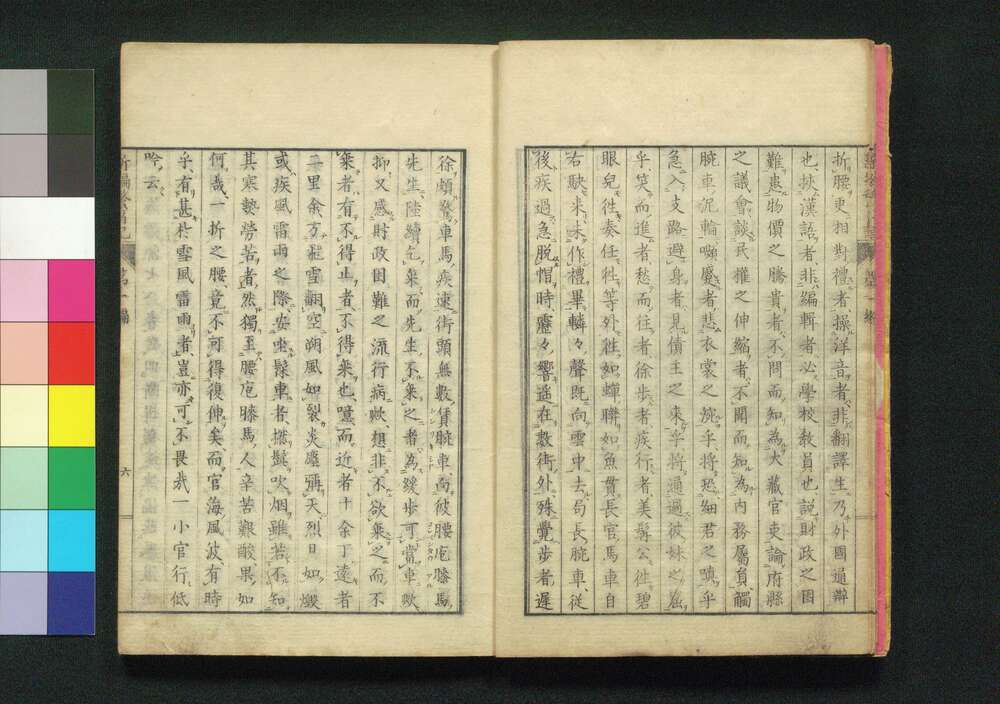 折腰更相對禮者操洋音者非翻譯生乃外國通辯
也挾漢語者非編輯者必學校教員也説財政之困
難患物價之騰貴者不問而知為大藏官吏論府縣
之議會談民權之伸縮者不聞而知為内務屬員觸
腕車泥輪嘶蹙者悲衣裳之
急入支路避身者見債主之來乎將通過彼妹之
乎笑而進者愁而往者徐歩者疾行者美髯公往碧
眼兒徃奏任徃等外徃如蟬聯如魚貫長官馬車自
右駛来未作禮畢轔々聲既向雲中去局長腕車從
後疾過急脱帽時轣々響遥在數街外殊覺歩者遲
徐頻驚車馬疾速街頭無數賃腕車而彼腰庖膝馬
先生陸續乞乗而先生不乗之者為緩歩可當車歟
抑又感財政困難之流行病歟想非不欲乗之而不
乗者有不得止者不得乗也噫而近者十余丁遠者
二里余方飛雪翻空朔風如裂炎塵漲天烈日如燬
或疾風雷雨之際安坐轎車者撚髭吹烟雖若不知
其寒熱勞苦者然獨至腰庖膝馬人辛苦艱酸果如
何哉一折之腰竟不可得復伸矣而官海風波有時
乎有甚於雪風雷雨者豈亦可不畏哉一小官行低
吟云
第一編
六